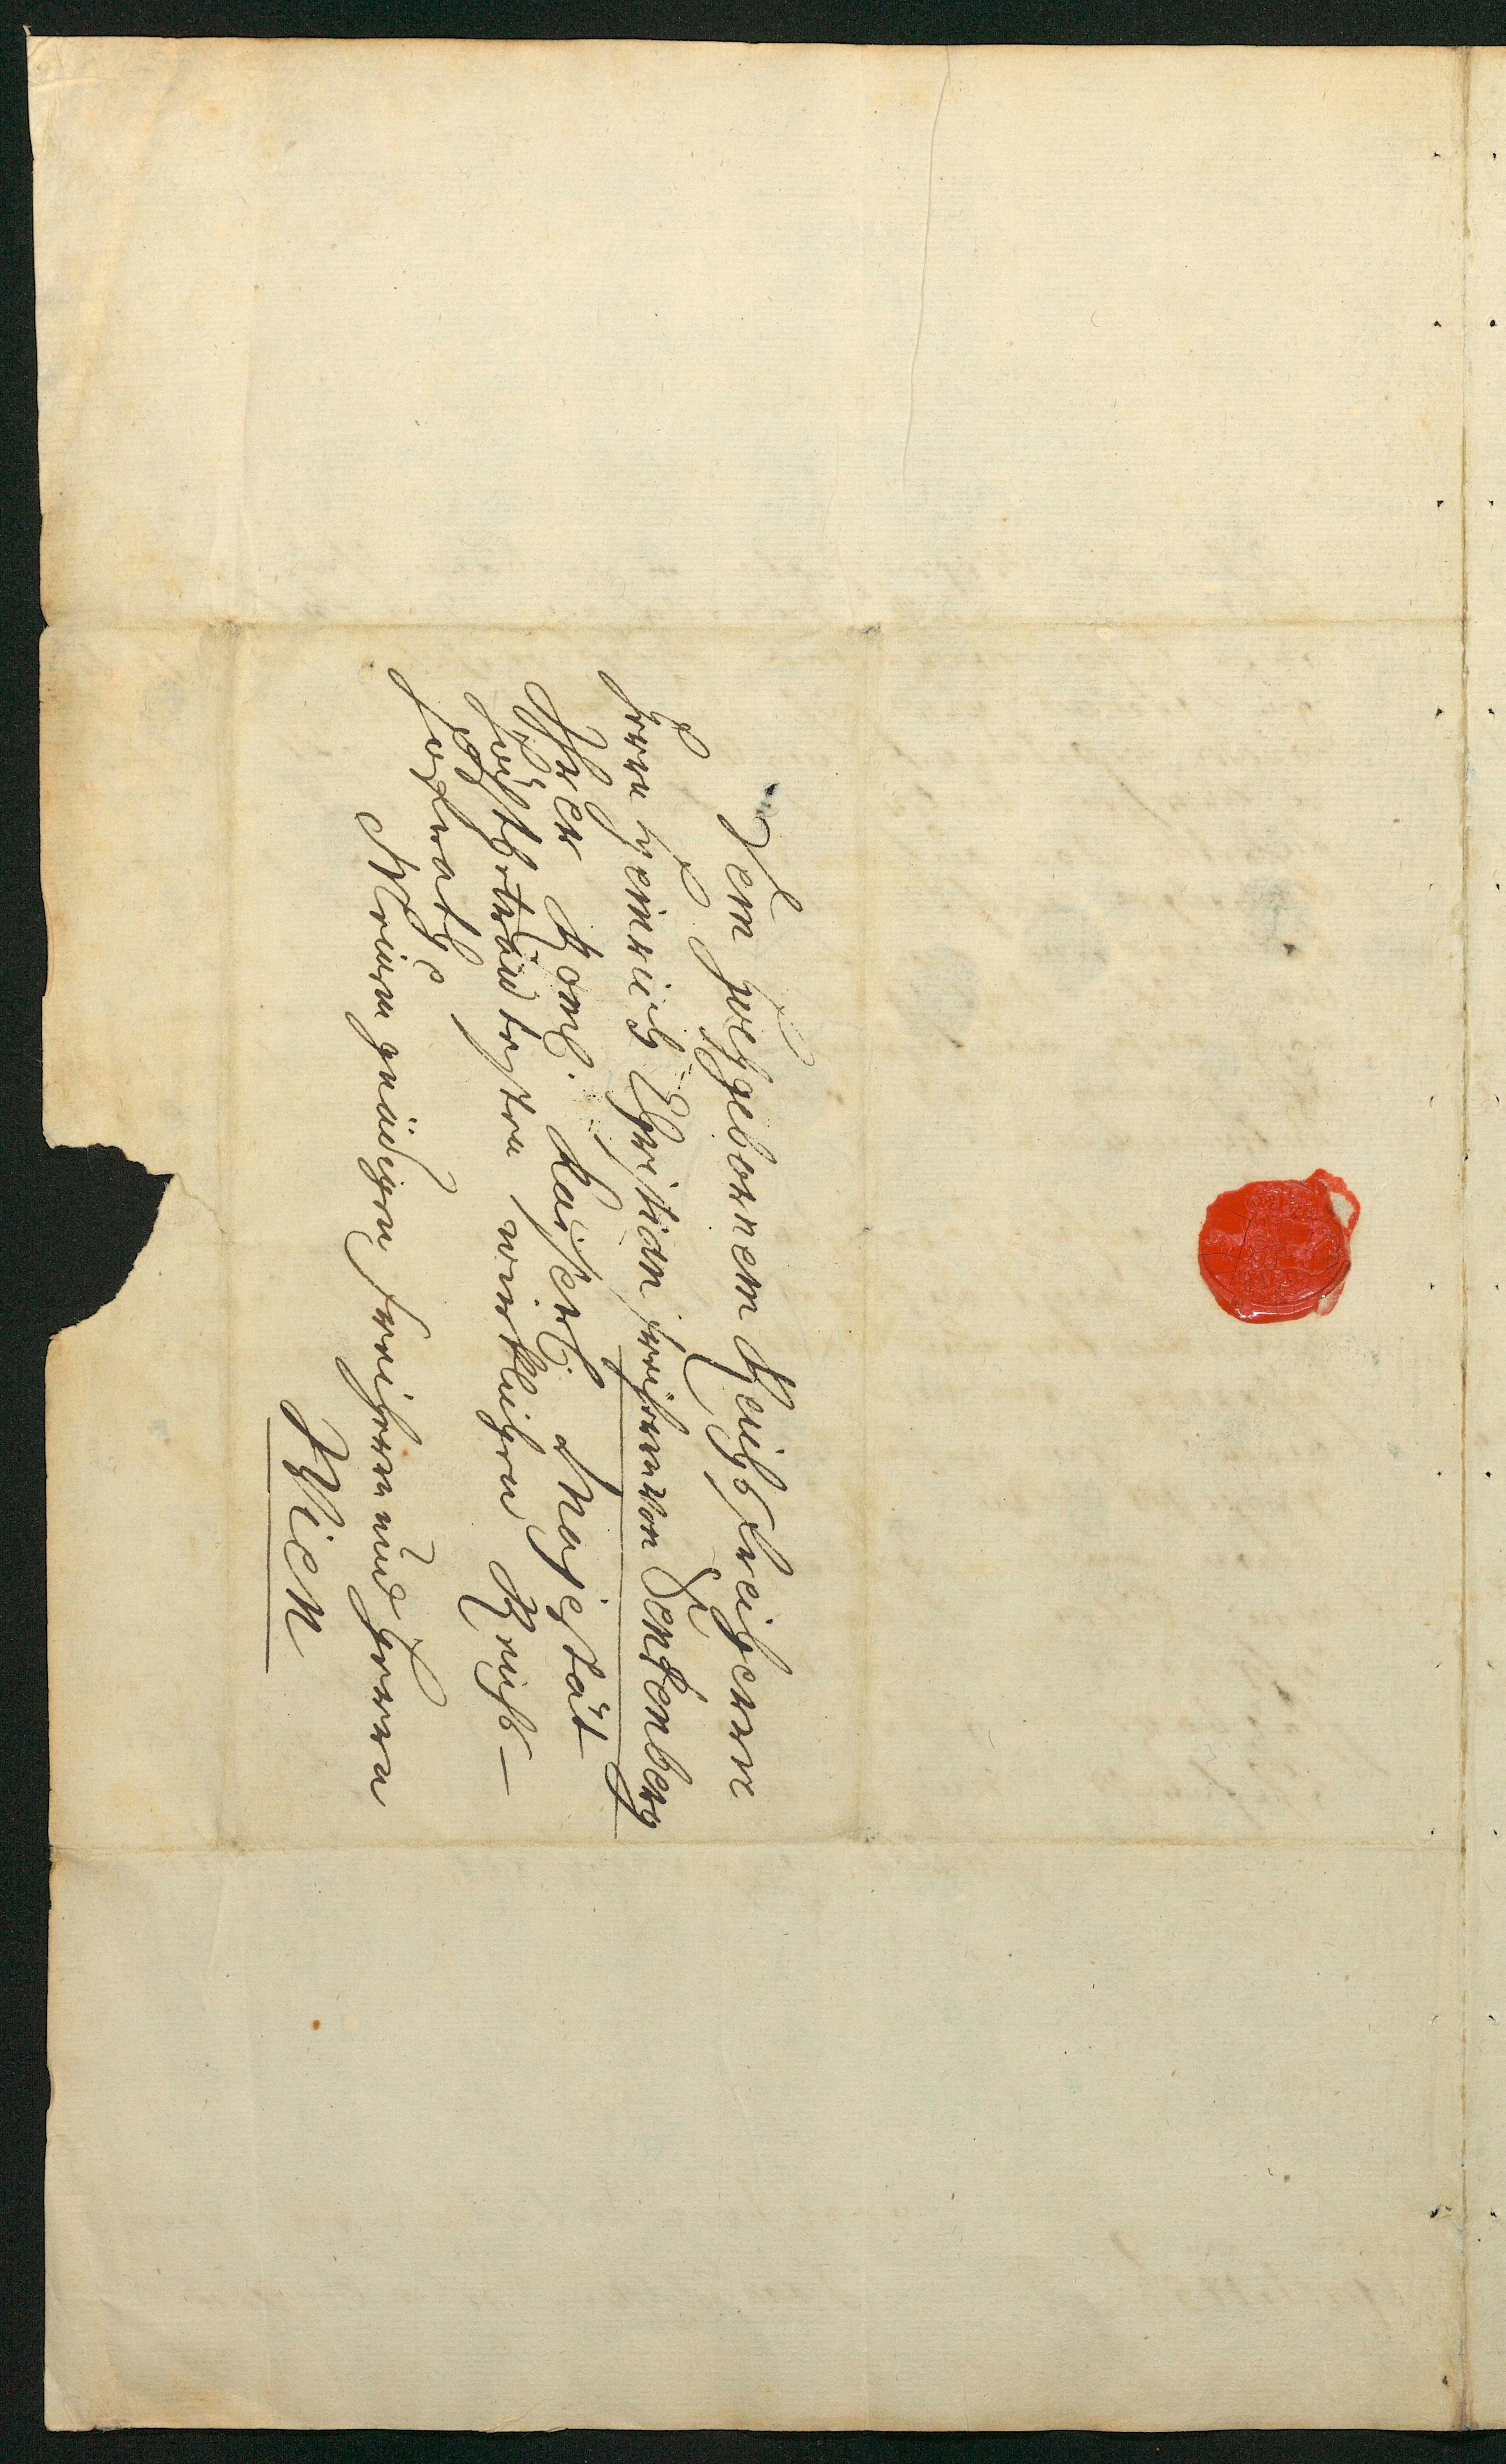 Dem Hochgebornem Reichsfreiherrn
Herrn Henrich Christian Freiherrn von Senkenberg
Ihrer Romi. Kaiserl. Majestät
Höchstbetrauttesten würcklichen Reichs-
Hofrath
Meinem gnädigen Freiherrn und Herrn
Wien